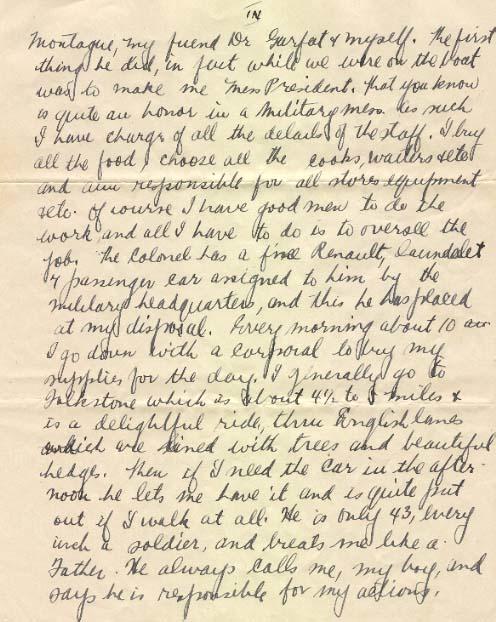 IV
Montague, my friend Dr Garfat & myself. The first
thing he did, in fact while we were on the boat
was to make me Mess President. That you know
is quite an honor in a Military mess. As such
I have charge of all the details of the staff. I buy
all the food, choose all the cooks, waiters & etc
and am responsible for all stores equipment
& etc. Of course I have good men to do the
work, and all I have to do is to oversee the
job. The Colonel has a fine Renault, Laundalet
7 passenger car assigned to him by the
military headquarters, and this he has placed
at my disposal. Every morning about 10 am
I go down with a corporal to buy my
supplies for the day. I generally go to
Folkstone which is about 4½ to 5 miles &
is a delightful ride, thru English lanes
which are lined with trees and beautiful
hedges. Then if I need the car in the after-
noon he lets me have it and is quite put
out if I walk at all. He is only 43, every
inch a soldier, and treats me like a
Father. He always calls me, my boy, and
says he is responsible for my actions.